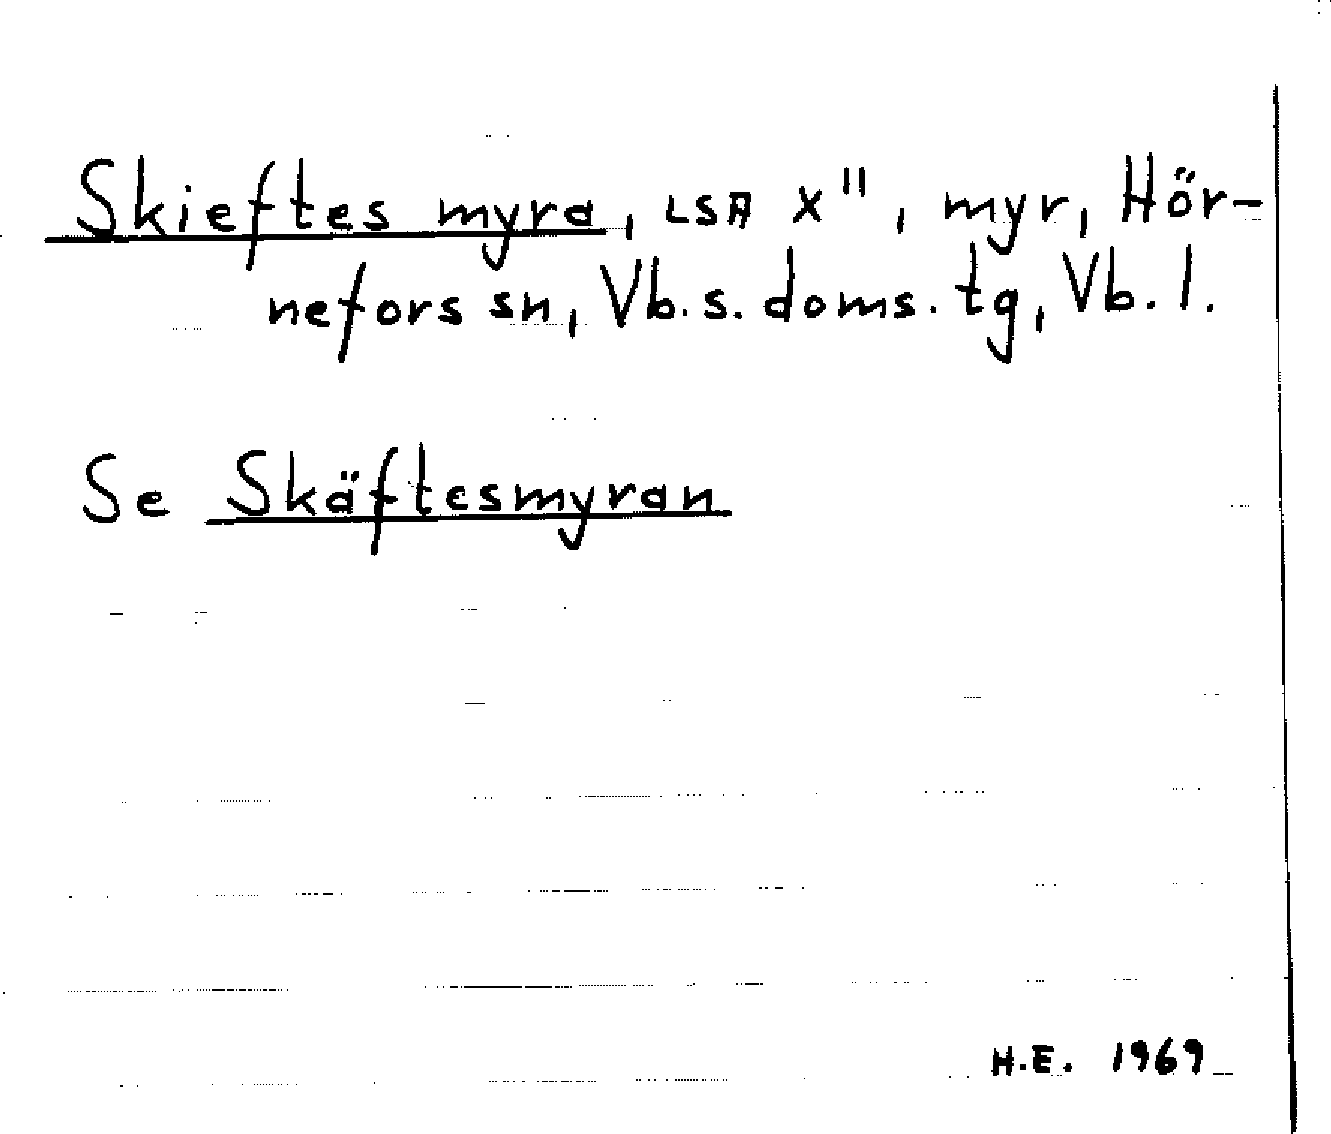 Skieftes myra, LSA X", myr, Hör-
nefors sn, Vb.s.doms.tg, Vb.l.
Se Skäftesmyran
H.E. 1969